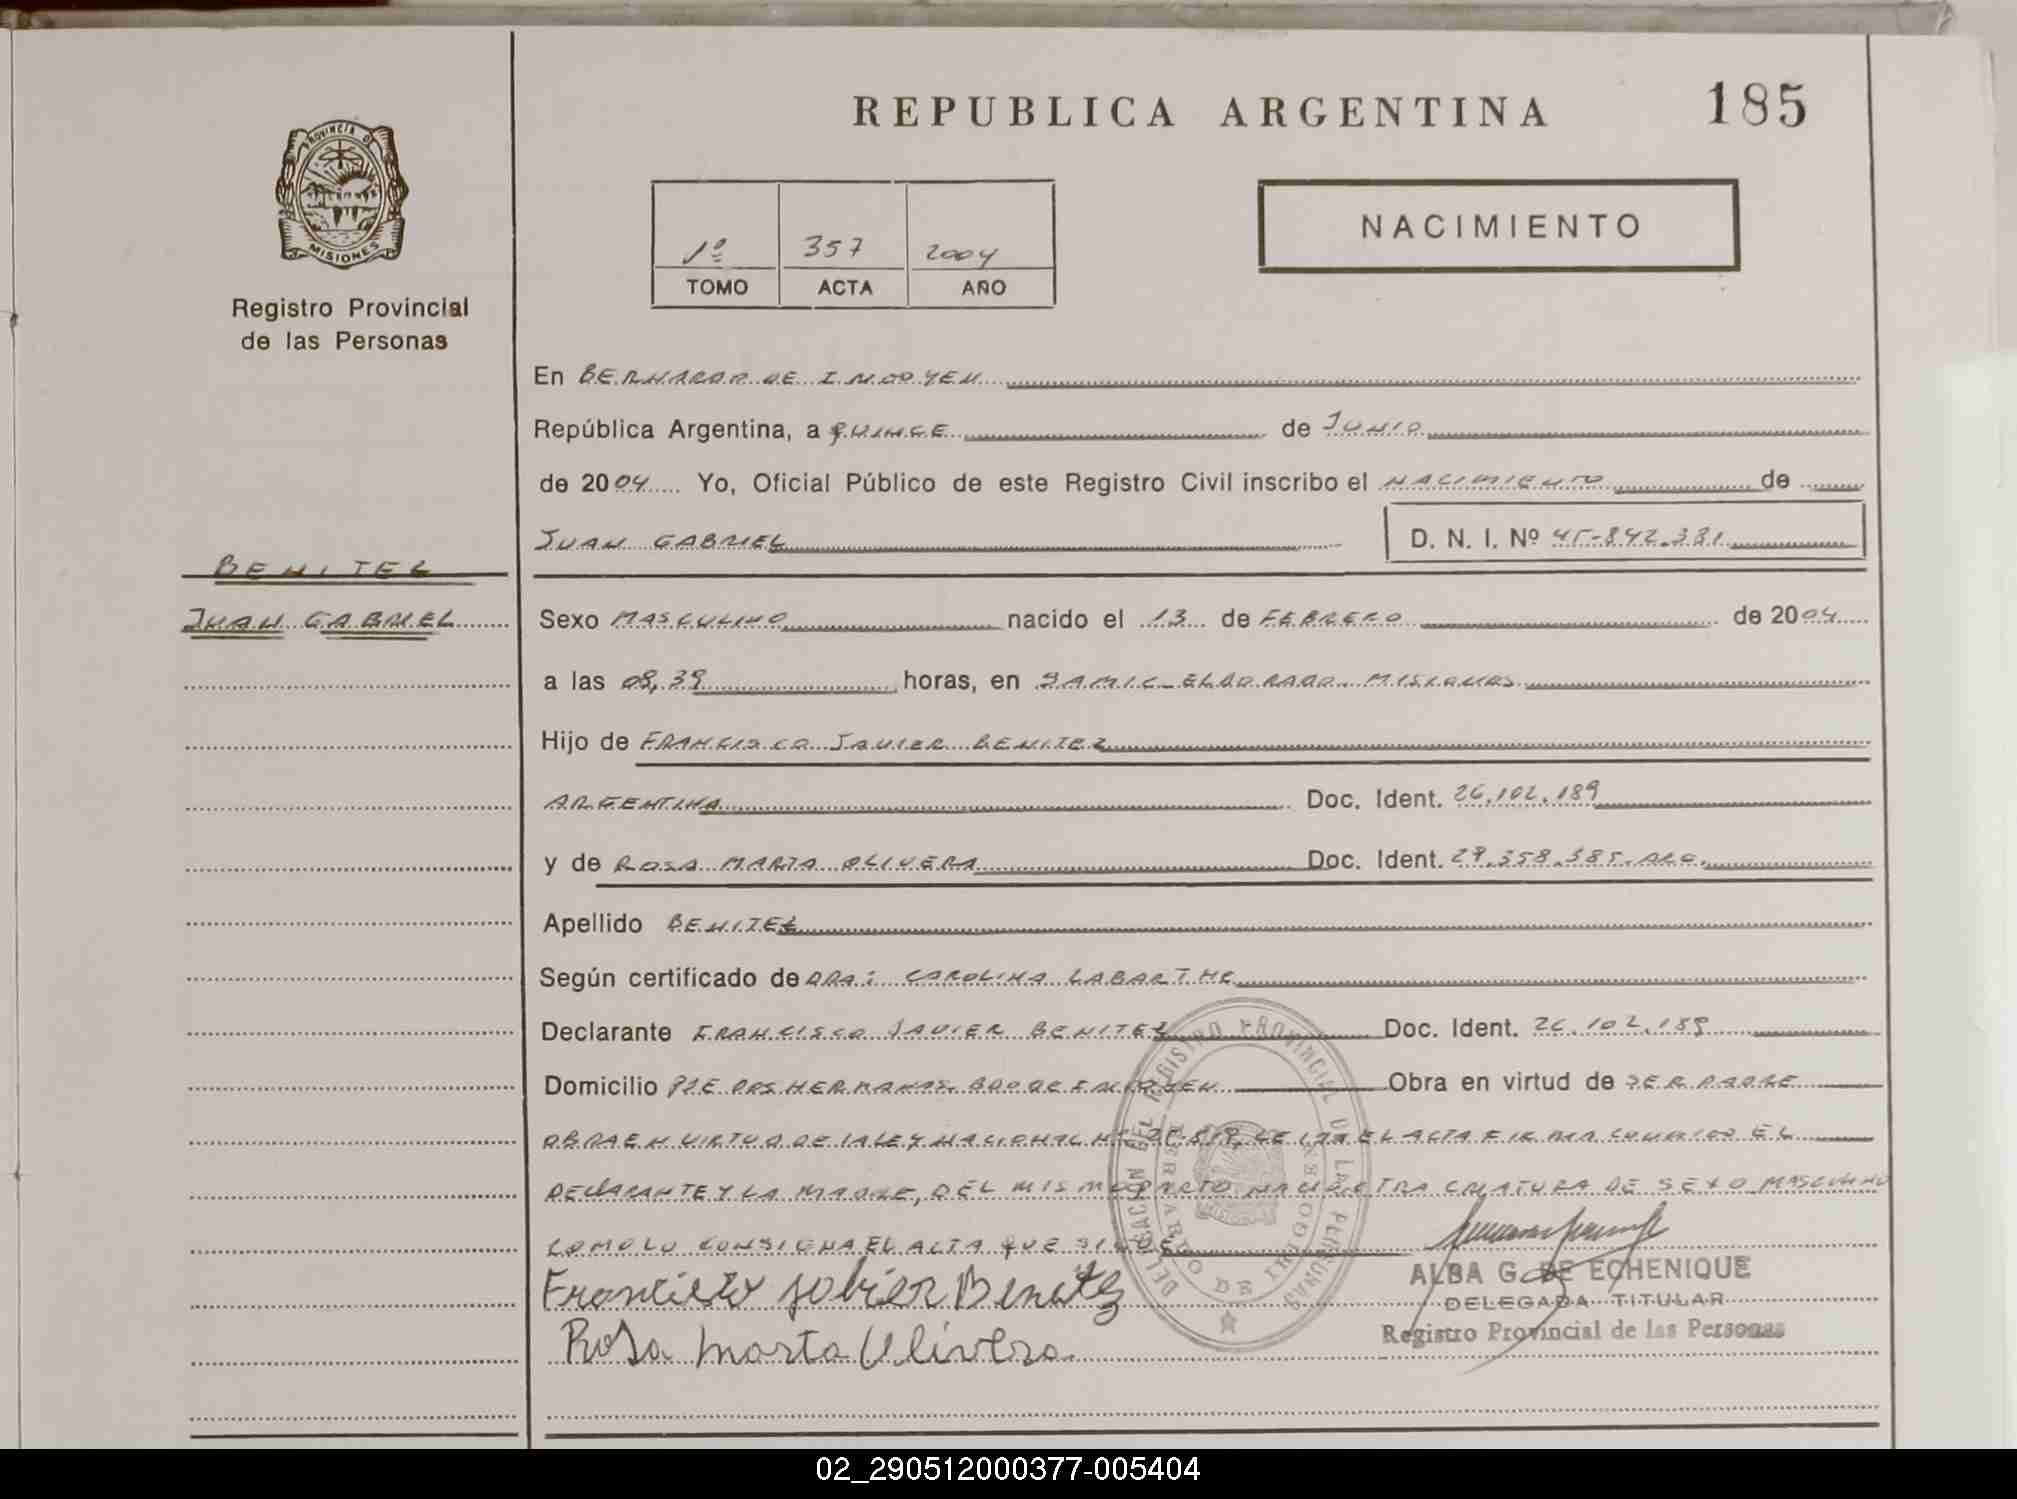 REPUBLICA ARGENTINA
185
PROVINCIA DE
MISIONES
Registro Provincial
de las Personas
1º 357 2004
TOMO ACTA AÑO
NACIMIENTO
En BERNARDO DE IRIGOYEN
República Argentina, a QUINCE de JUNIO
de 2004 Yo, Oficial Público de este Registro Civil inscribo el NACIMIENTO de
JUAN GABRIEL D. N. I. Nº 45-842.381
BENITEZ
JUAN GABRIEL
Sexo MASCULINO nacido el 13 de FEBRERO de 2004
a las 08,39 horas, en SAMIC ELDORADO MISIONES
Hijo de FRANCISCO JAVIER BENITEZ
ARGENTINA Doc. Ident. 26.102.189
y de ROSA MARTA OLIVERA Doc. Ident. 29.358.585 ARG.
Apellido BENITEZ
Según certificado de DRA: CAROLINA LABARTHE
Declarante FRANCISCO JAVIER BENITEZ Doc. Ident. 26.102.189
Domicilio PJE DOS HERMANAS BDO DE IRIGOYEN Obra en virtud de SER PADRE
OBRA EN VIRTUD DE LA LEY NACIONAL Nº LEIDA EL ACTA FIRMA CONMIGO EL
DECLARANTE Y LA MADRE, DEL MISMO PARTO NACIO OTRA CRIATURA DE SEXO MASCULINO
COMO LO CONSIGNA EL ACTA QUE SIGUE
DELEGACION DEL REGISTRO PROVINCIAL DE LAS PERSONAS
BERNARDO DE IRIGOYEN
Francisco Jobier Benitez
Rosa marta Olivera
ALBA G. DE ECHENIQUE
DELEGADA TITULAR
Registro Provincial de las Personas
02_290512000377-005404